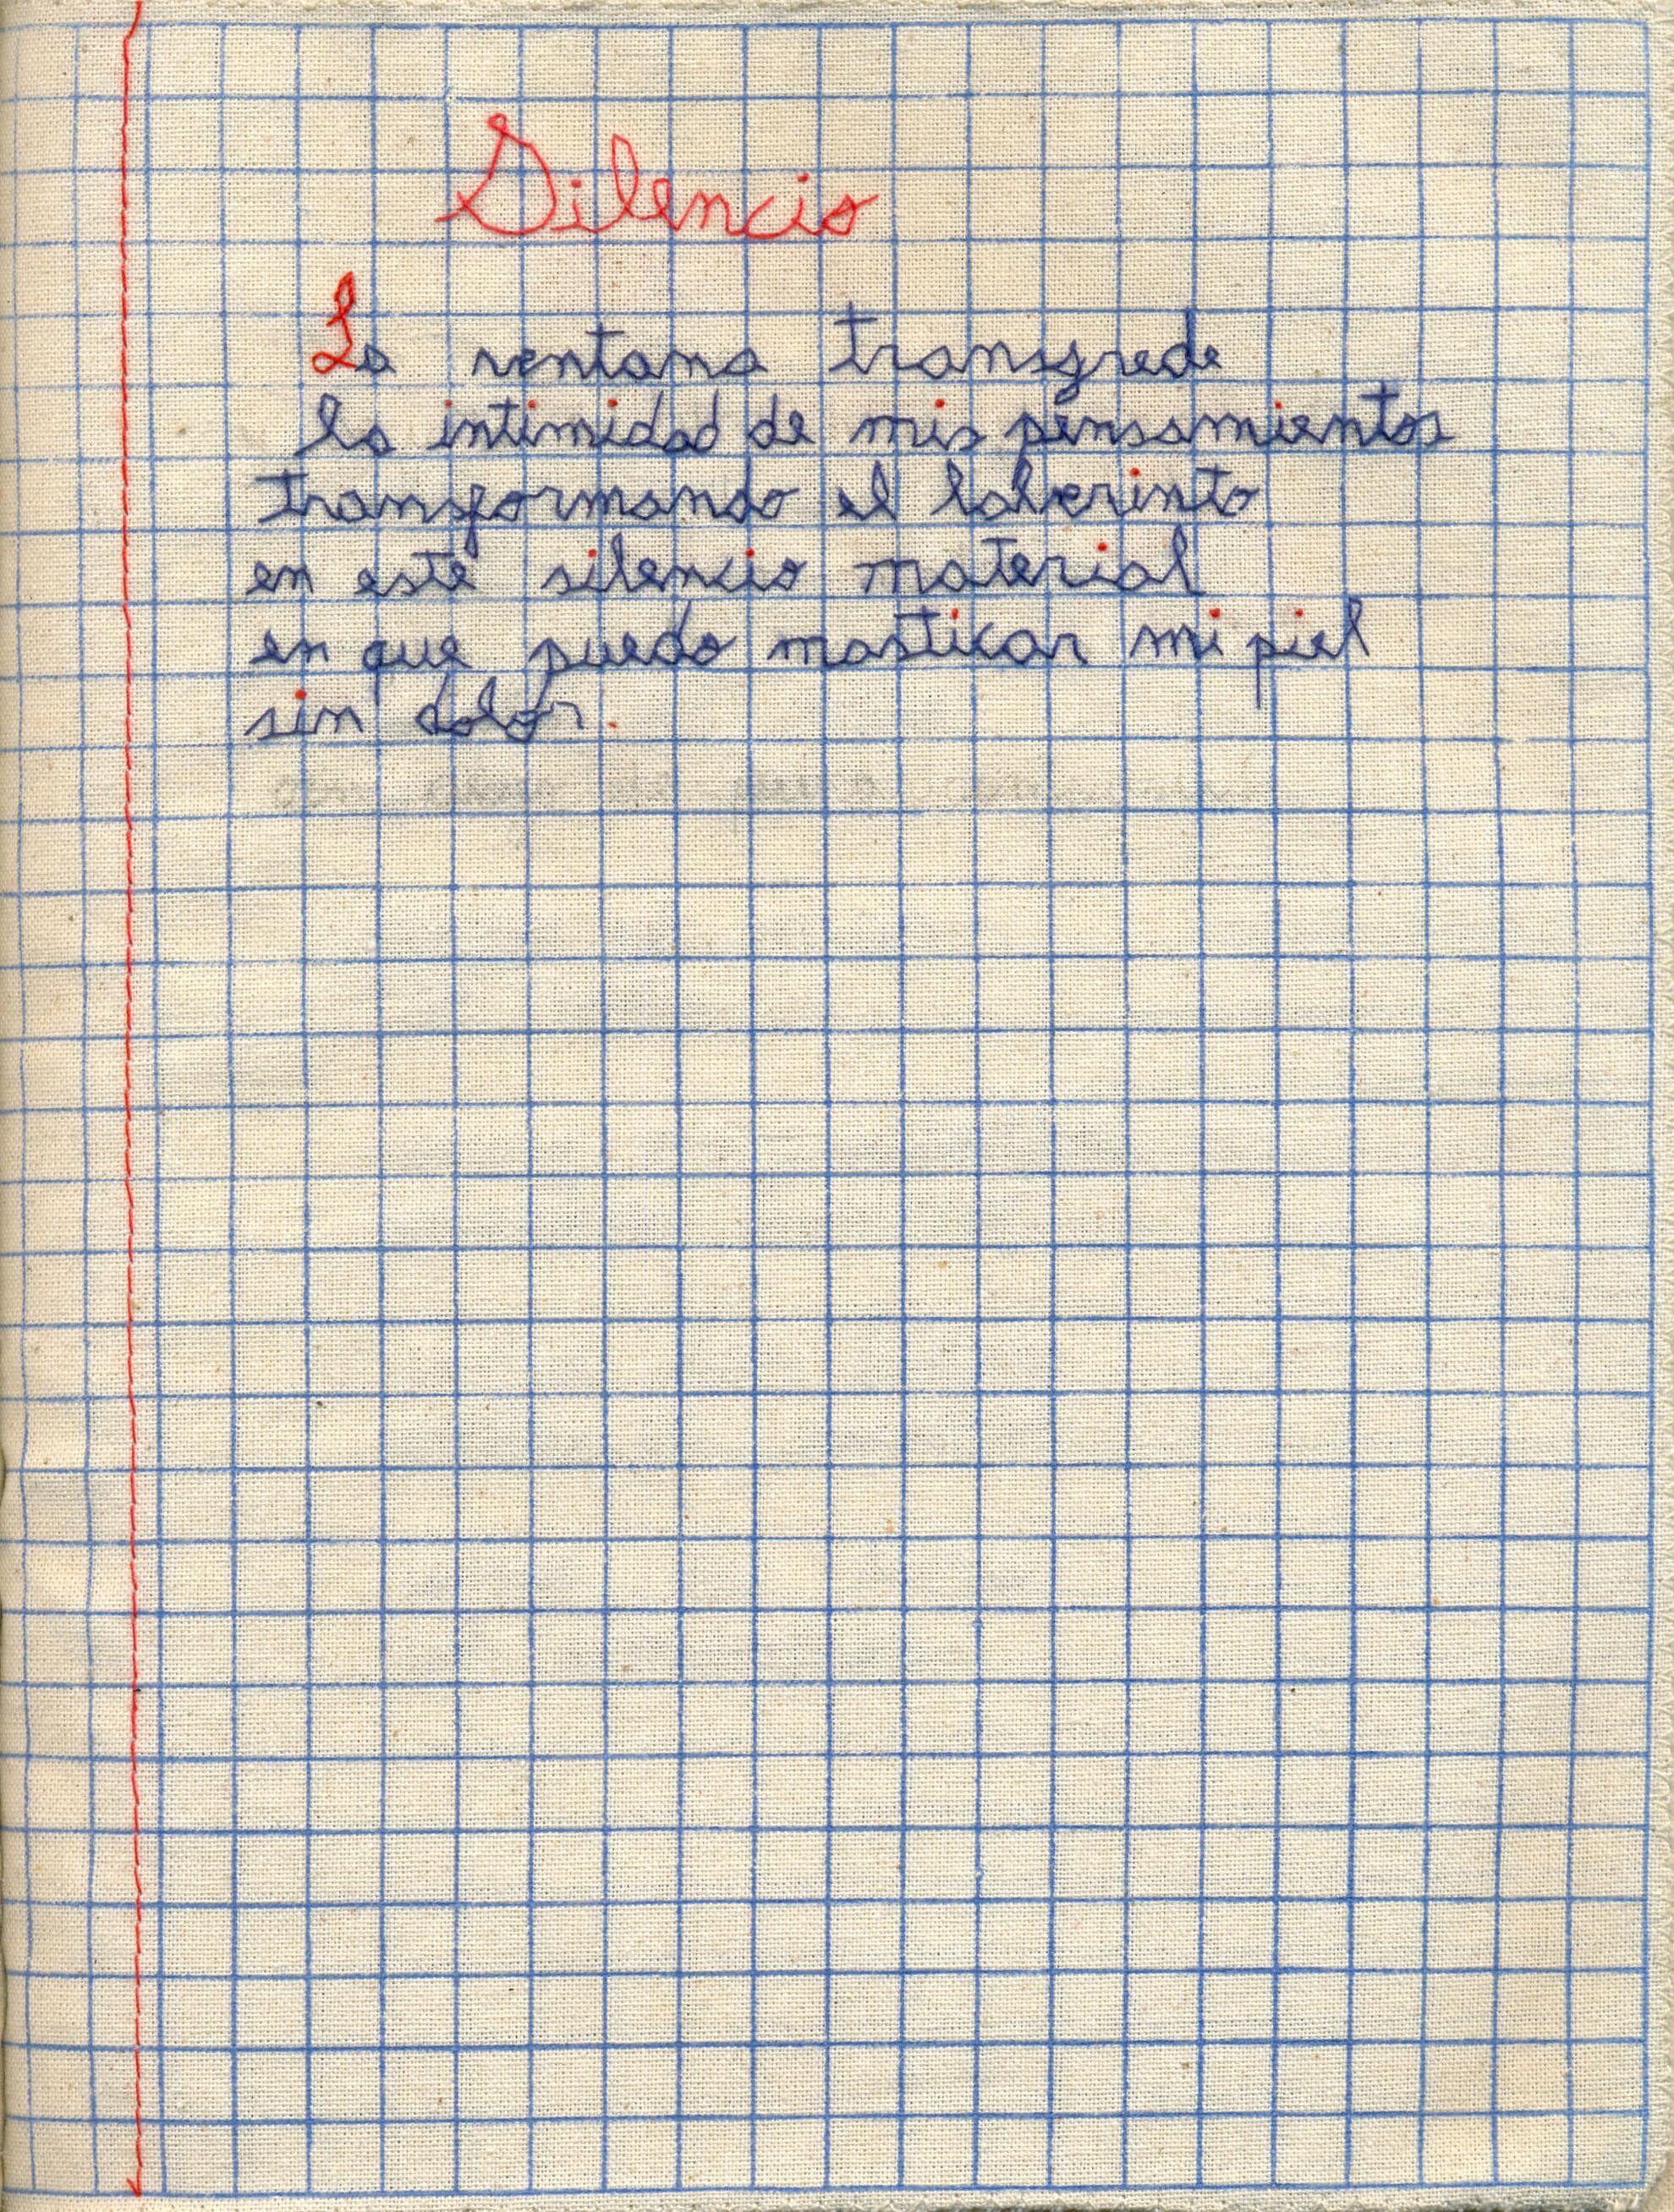 Silencio
La ventana transgrede
la intimidad de mis pensamientos
transformando el laberinto
en este silencio material
en que puedo masticar mi piel
sin dolor.